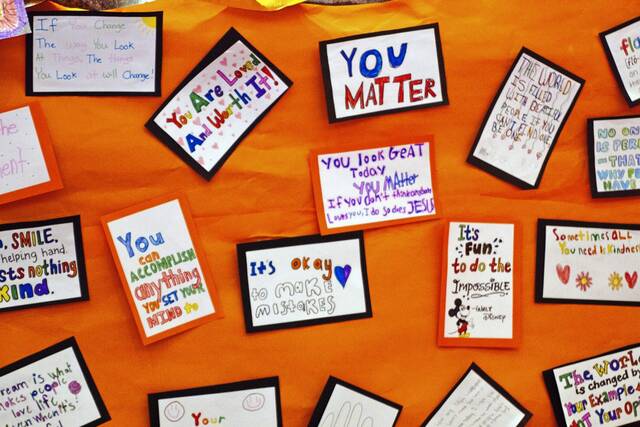 If You Change
The Way You Look
At Things, The Things
You Look at will Change!
You Are Loved
And Worth It!
YOU
MATTER
THE WORLD
IS FILLED
WITH
PEOPLE IF YOU
CAN'T FIND ONE
BE ONE
NO ONE
IS PER
THAT
WHY PE
HAVE
he
ent.
You look GEAT
Today
YOU MAtter
If you don't think
Loves you, I do so does JESUS
SMILE.
helping hand.
sts nothing
KIND.
You
can
ACCOMPLISH
anything
YOU SET YOUR
MIND to
It's okay
to make
mistakes
It's
FUN
to do the
Impossible
-Walt
Disney
Sometimes ALL
You need is Kindness
ream is what
makes people
love life
The World
is changed by
Your Example
Not Your Op
Your